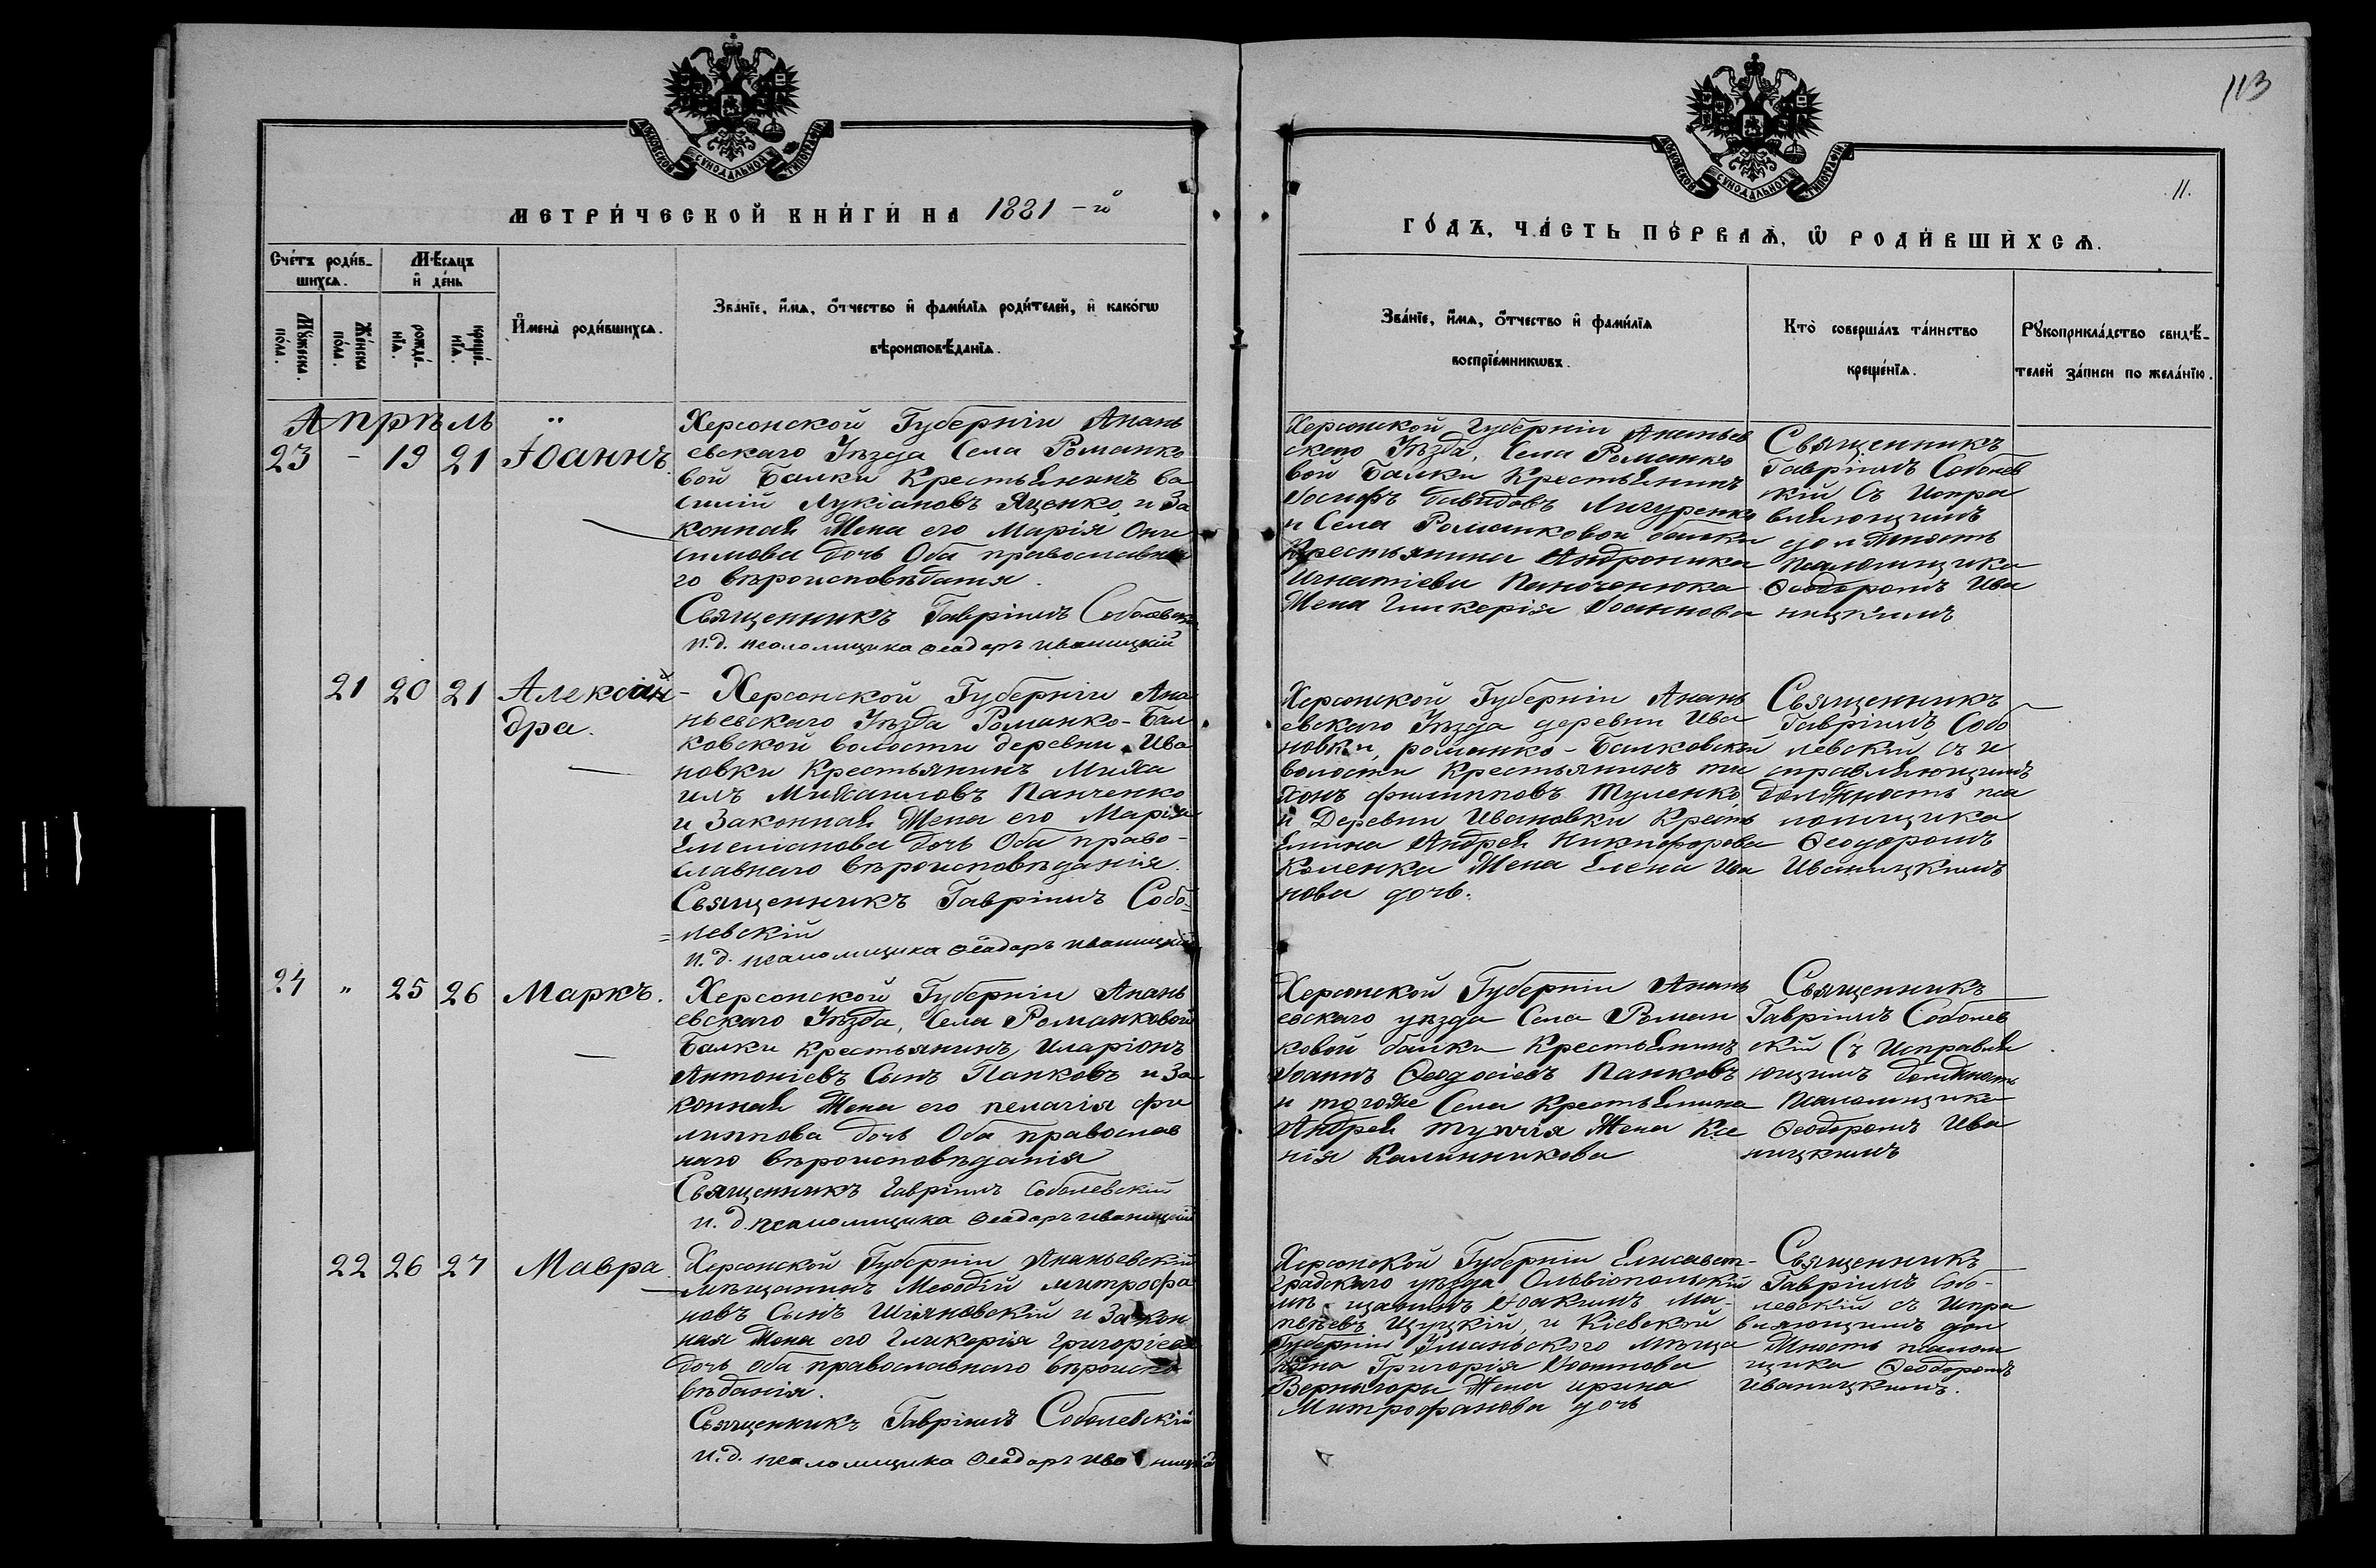 113
11.
МОСКОВСКОЙ СѴНОДАЛЬНОЙ ТИПОГРАФІИ
МОСКОВСКОЙ СѴНОДАЛЬНОЙ ТИПОГРАФІИ
МЕТРИ́ЧЕСКОЙ КНИ́ГИ НА 1881-й
ГО́ДЪ, ЧА́СТЬ ПЕ́РВАѦ, Ѡ РОДИ́ВШИХСѦ.
Сче́тъ роди́в-
шихсѧ.
Мѣ́сяцъ
и де́нь
Мꙋ́жеска по́ла.
Же́нска по́ла.
рожде́-
нїѧ.
креще́-
нїѧ.
И҆мена̀ роди́вшихсѧ.
Зва́нїе, и҆́мѧ, о҆́тчество и҆ фами́лїѧ роди́телей, и҆ како́гѡ
вѣроисповѣ́данїѧ.
Зва́нїе, и҆́мѧ, о҆́тчество и҆ фами́лїѧ
воспрїе́мникѡвъ.
Кто̀ соверша́лъ та́инство
креще́нїѧ.
Рꙋкоприкла́дство свидѣ́-
телей за́писи по жела́нїю.
Апрѣль
23 - 19 21 Іоаннъ.
Херсонской Губерніи Анань
евскаго Уѣзда Села Романко
вой Балки Крестьянинъ Ва
силій Лукіановъ Яценко, и За
конная Жена его Марія Они
симова дочь Оба православна
го вѣроисповѣданія.
Священникъ Гавріилъ Соболевскій
И.д. псаломщика Ѳеодоръ Иваницкій
Херсонской Губерніи Ананьев
скаго Уѣзда, Села Романко
вой Балки Крестьянинъ
Іосифъ Давидовъ Личуренко
и Села Романковой балки
Крестьянина Андроника
Игнатіева Паноченюка
Жена Гликерія Іоаннова
Священникъ
Гавріилъ Соболев
скій Съ Испра
вляющимъ
должность
псаломщика
Ѳеодоромъ Ива
ницкимъ
21 20 21 Алексан-
дра.
Херсонской Губерніи Ана
ньевскаго Уѣзда Романко-Бал
ковской волости деревни Ива
новки Крестьянинъ Миха
илъ Михаиловъ Панченко
и Законная Жена его Марія
Емеліанова дочь Оба право-
славнаго вѣроисповѣданія.
Священникъ Гавріилъ Собо-
левскій
И.д. псаломщика Ѳеодоръ Иваницкій
Херсонской Губерніи Анань
евскаго Уѣзда деревни Ива
новки, романко-Балковской
волости Крестьянинъ ти
хонъ филипповъ Туленко
и Деревни Ивановки Кресть
янина Андрея Никифорова
Коменки Жена Елена Ива
нова дочь.
Священникъ
Гавріилъ Собо
левскій съ и
справляющимъ
должность пса
ломщика
Ѳеодоромъ
Иваницкимъ
24 " 25 26 Маркъ.
Херсонской Губерніи Анань
евскаго Уѣзда, Села Романковой
Балки Крестьянинъ Иларіонъ
Антоніевъ Сынъ Папковъ и За
конная Жена его пелагія фи
липпова дочь Оба православ
наго вѣроисповѣданія
Священникъ Гавріилъ Соболевскій
И.д. псаломщика Ѳеодоръ Иваницкій
Херсонской Губерніи Анань
евскаго уѣзда Села Роман
ковой балки Крестьянинъ
Іоаннъ Ѳеодосіевъ Панковъ
и тогоже Села Крестьянина
Андрея Жена Ксе
нія Калинникова
Священникъ
Гавріилъ Соболев
скій Съ Исправля
ющимъ должность
псаломщика
Ѳеодоромъ Ива
ницкимъ
22 26 27 Мавра
Херсонской Губерніи Ананьевскій
мѣщанинъ Меѳодій митрофа
новъ Сынъ Шіяновскій и Закон
ная Жена его Гликерія Григоріева
дочь оба православнаго вѣроиспо
вѣданія.
Священникъ Гавріилъ Соболевскій
И.д. псаломщика Ѳеодоръ Иваницкій
Херсонской Губерніи Елисавет-
градскаго уѣзда Ольвіопольскій
мѣщанинъ Іоакимъ Ма-
твѣевъ Щуцкій, и Кіевской
Губерніи Уманьскаго Мѣща
нина Григорія Іоаннова
Вернигоры Жена ирина
Митрофанова дочь
Священникъ
Гавріилъ Собо-
левскій съ Испра
вляющимъ дол
жность псалом
щика Ѳеодоромъ
Иваницкимъ.